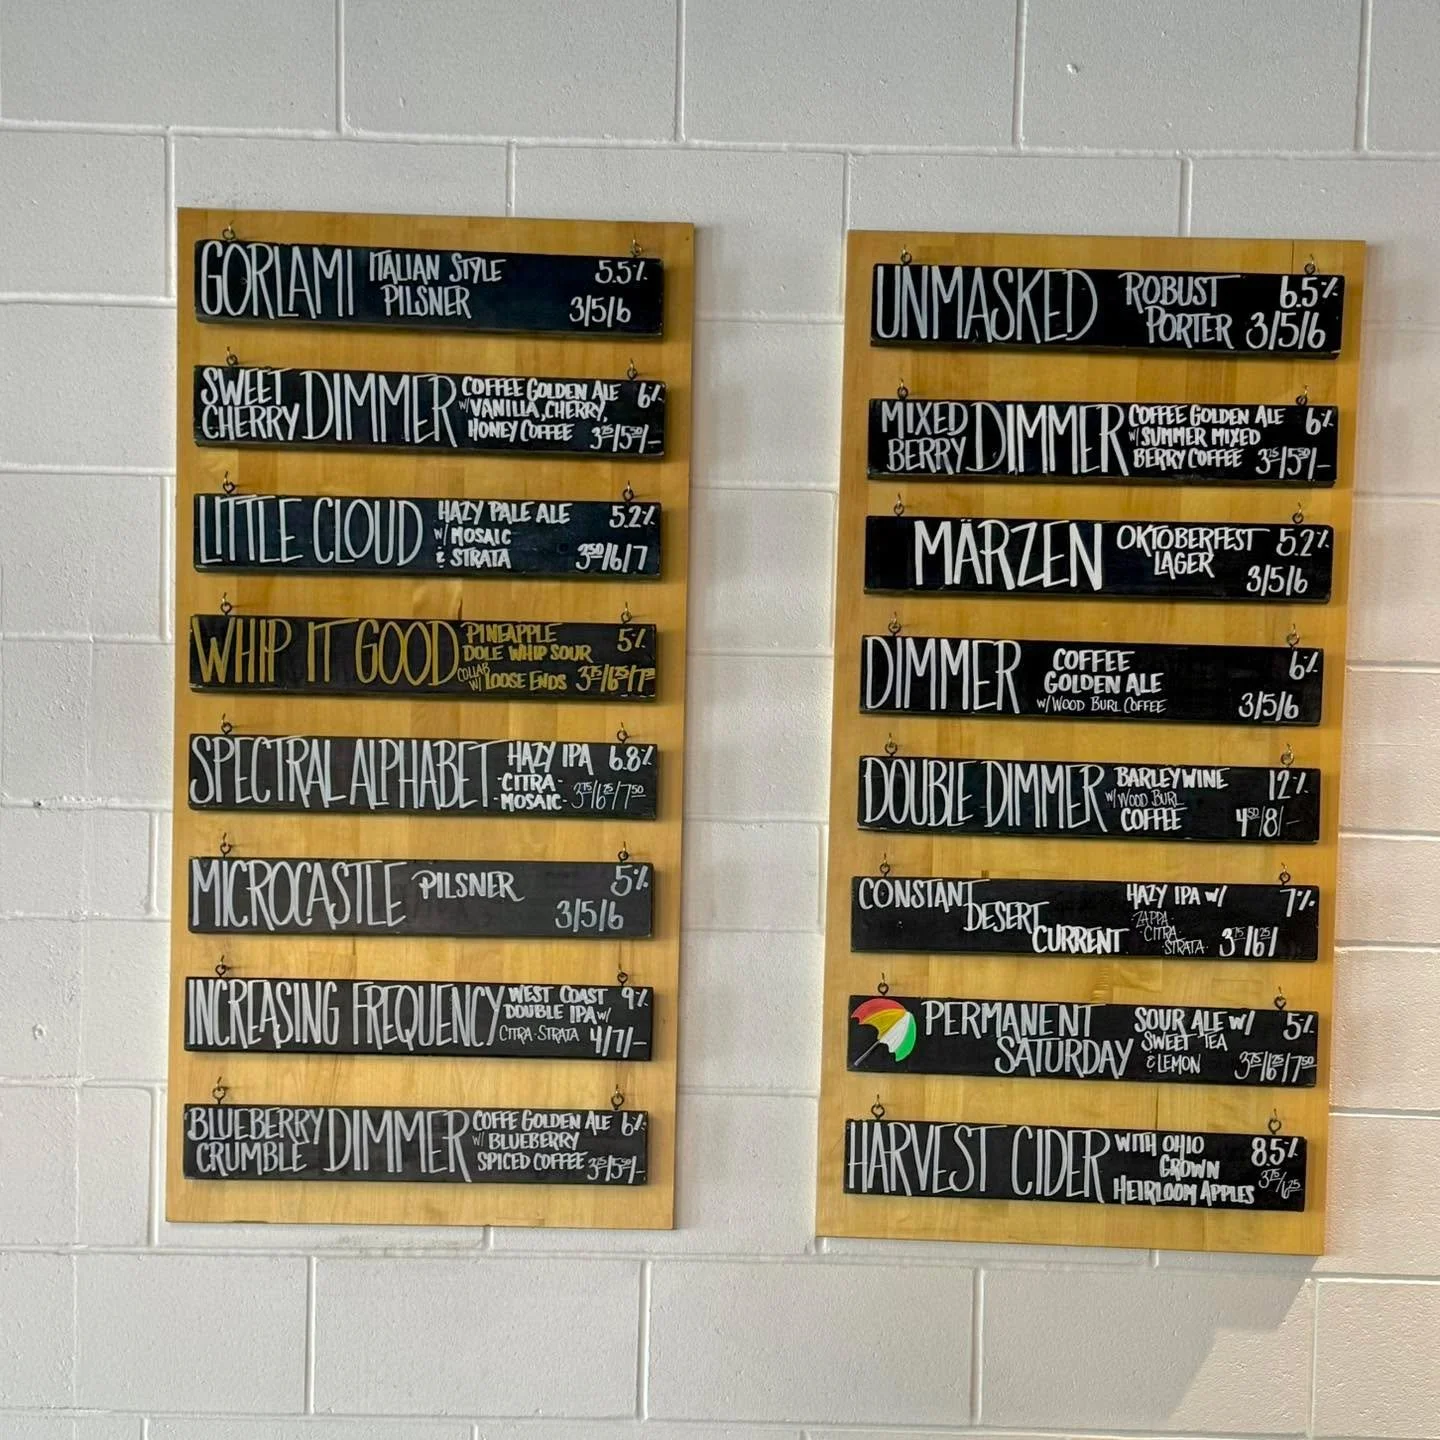 GORLAMI ITALIAN STYLE 5.5%
PILSNER 3/5/6
SWEET CHERRY DIMMER COFFEE GOLDEN ALE 6%
W/ VANILLA, CHERRY,
HONEY COFFEE 3.75/5.50/-
LITTLE CLOUD HAZY PALE ALE 5.2%
W/ MOSAIC
& STRATA 3.50/6/7
WHIP IT GOOD PINEAPPLE 5%
DOLE WHIP SOUR
COLLAB W/ LOOSE ENDS 3.75/6.25/7.50
SPECTRAL ALPHABET HAZY IPA 6.8%
-CITRA-
MOSAIC- 3.75/6.25/7.50
MICROCASTLE PILSNER 5%
3/5/6
INCREASING FREQUENCY WEST COAST 9%
DOUBLE IPA W/
CITRA-STRATA 4/7/-
BLUEBERRY CRUMBLE DIMMER COFFE GOLDEN ALE 6%
W/ BLUEBERRY
SPICED COFFEE 3.75/5.50/-
UNMASKED ROBUST 6.5%
PORTER 3/5/6
MIXED BERRY DIMMER COFFEE GOLDEN ALE 6%
W/ SUMMER MIXED
BERRY COFFEE 3.75/5.50/-
MÄRZEN OKTOBERFEST 5.2%
LAGER 3/5/6
DIMMER COFFEE 6%
GOLDEN ALE
W/ WOOD BURL COFFEE 3/5/6
DOUBLE DIMMER BARLEYWINE 12%
W/ WOOD BURL
COFFEE 4.50/8/-
CONSTANT HAZY IPA W/ 7%
DESERT ZAPPA
CURRENT ·CITRA·
STRATA· 3.75/6.25/
PERMANENT SOUR ALE W/ 5%
SATURDAY SWEET TEA
& LEMON 3.75/6.25/7.50
HARVEST CIDER WITH OHIO 8.5%
GROWN
HEIRLOOM APPLES 3.75/6.25